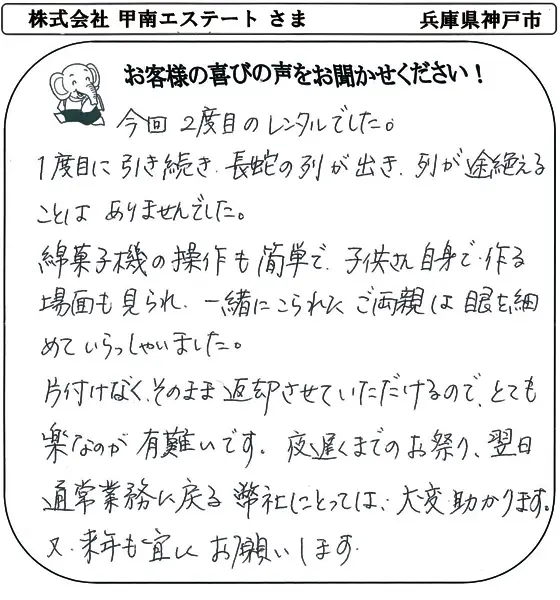 株式会社 甲南エステート さま　兵庫県神戸市
お客様の喜びの声をお聞かせください！
今回 2度目のレンタルでした。
1度目に引き続き、長蛇の列が出き、列が途絶える
ことは ありませんでした。
綿菓子機の操作も簡単で、子供さん自身で作る
場面も見られ、一緒にこられた ご両親は眼を細
めていらっしゃいました。
片付けなく、そのまま返却させていただけるので、とても
楽なのが 有難いです。夜遅くまでのお祭り、翌日
通常業務に戻る 弊社にとっては、大変助かります。
又、来年も宜しく お願いします